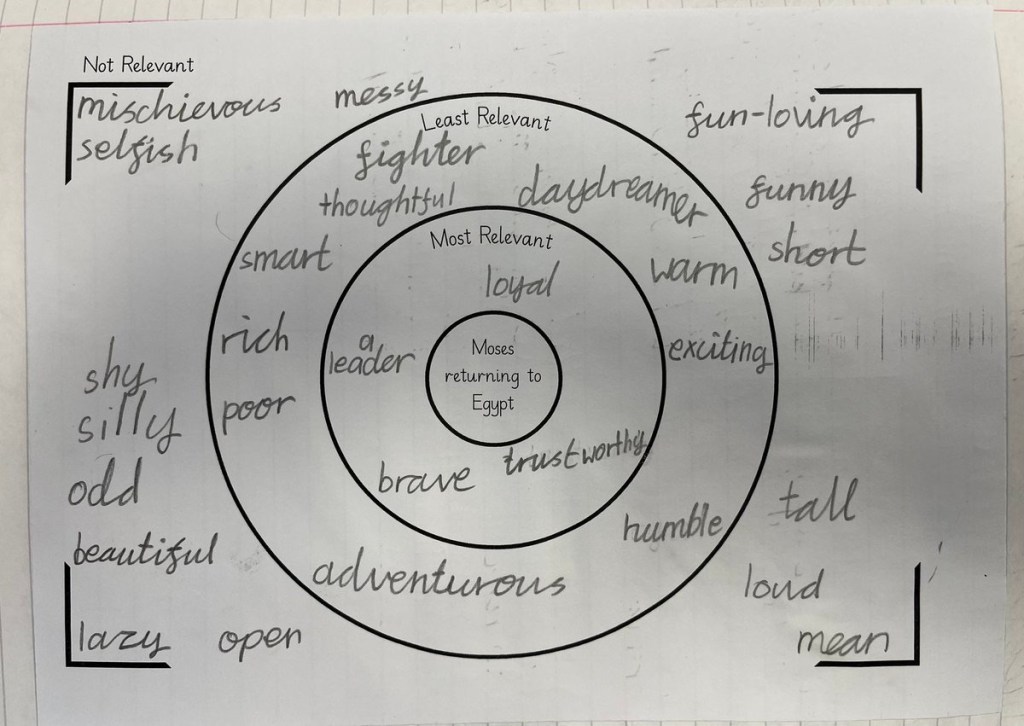 Not Relevant
mischievous
messy
fun-loving
selfish
Least Relevant
fighter
thoughtful
daydreamer
funny
smart
Most Relevant
warm
short
loyal
rich
a
leader
Moses
returning to
Egypt
exciting
shy
silly
poor
odd
brave
trustworthy
tall
humble
beautiful
adventurous
loud
lazy
open
mean